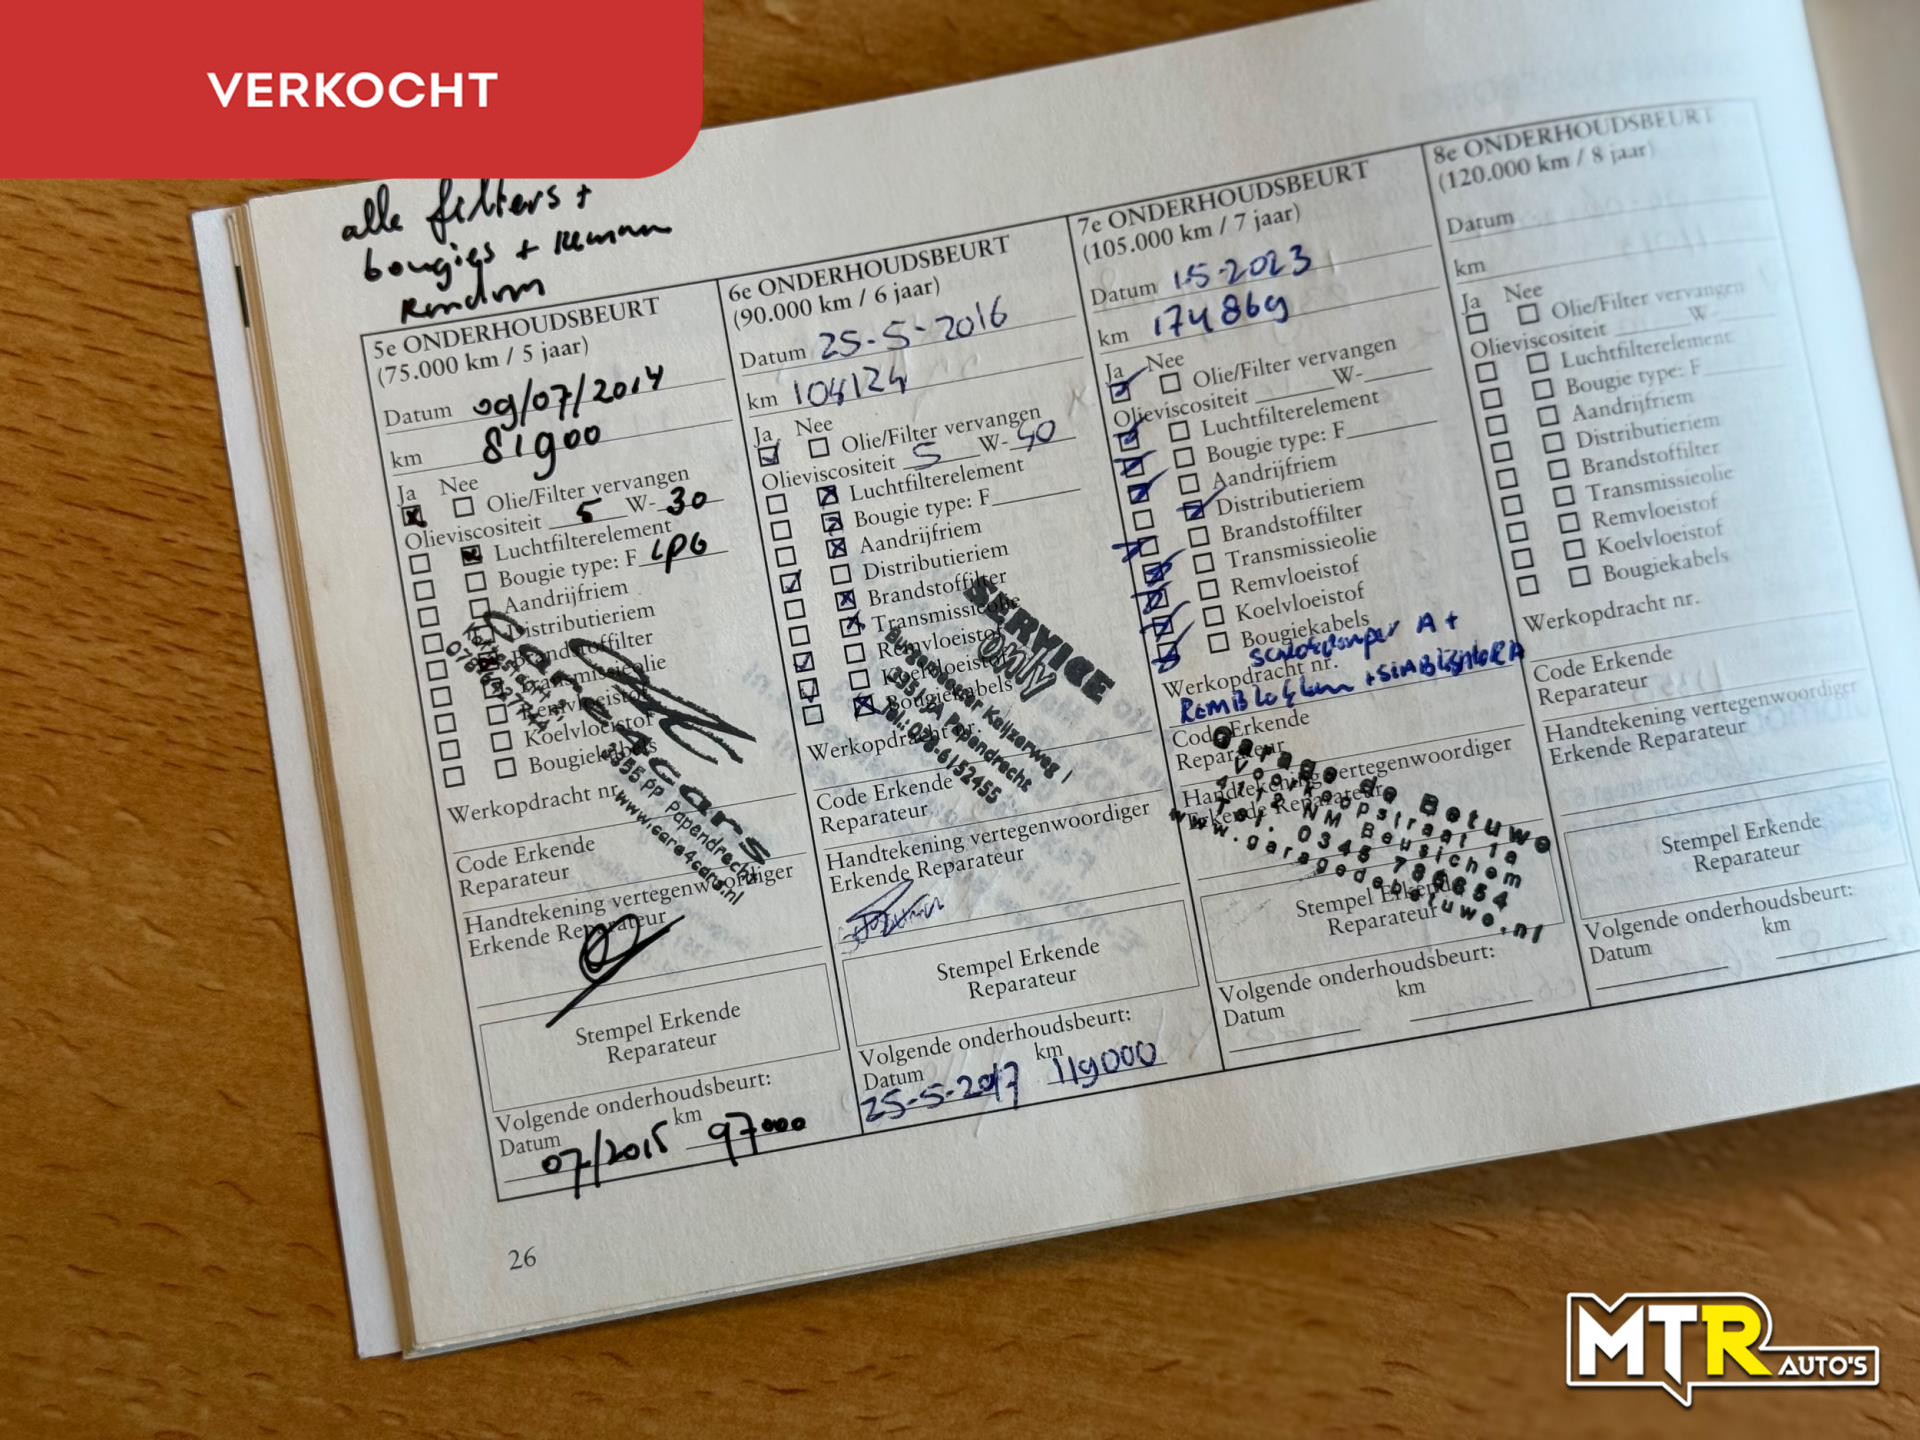 VERKOCHT
alle filters +
bougies + remmen
rondom
5e ONDERHOUDSBEURT
(75.000 km / 5 jaar)
Datum 09/07/2014
km 81900
Ja Nee
Olie/Filter vervangen
Olieviscositeit 5 W- 30
Luchtfilterelement
Bougie type: F LPG
Aandrijfriem
Distributieriem
Brandstoffilter
Transmissieolie
Remvloeistof
Koelvloeistof
Bougiekabels
Werkopdracht nr.
cars
3355 PP Papendrecht
www.care4cars.nl
Code Erkende
Reparateur
Handtekening vertegenwoordiger
Erkende Reparateur
Stempel Erkende
Reparateur
Volgende onderhoudsbeurt:
Datum km
07/2015 97000
6e ONDERHOUDSBEURT
(90.000 km / 6 jaar)
Datum 25-5-2016
km 104124
Ja Nee
Olie/Filter vervangen
Olieviscositeit 5 W-
Luchtfilterelement
Bougie type: F
Aandrijfriem
Distributieriem
Brandstoffilter
Transmissieolie
Remvloeistof
Koelvloeistof
Bougiekabels
SERVICE
only
Burgemeester Keijzerweg 1
3355 Papendrecht
Tel.: 078-6152455
Werkopdracht nr.
Code Erkende
Reparateur
Handtekening vertegenwoordiger
Erkende Reparateur
Stempel Erkende
Reparateur
Volgende onderhoudsbeurt:
Datum km
25-5-2017 119000
7e ONDERHOUDSBEURT
(105.000 km / 7 jaar)
Datum 15-2023
km 174869
Ja Nee
Olie/Filter vervangen
Olieviscositeit W-
Luchtfilterelement
Bougie type: F
Aandrijfriem
Distributieriem
Brandstoffilter
Transmissieolie
Remvloeistof
Koelvloeistof
Bougiekabels
A +
Werkopdracht nr.
Code Erkende
Reparateur
Handtekening vertegenwoordiger
Erkende Reparateur
Garage de Betuwe
NM Beusichem
Tel. 0345 785654
www.garagedebetuwe.nl
Stempel Erkende
Reparateur
Volgende onderhoudsbeurt:
Datum km
8e ONDERHOUDSBEURT
(120.000 km / 8 jaar)
Datum
km
Ja Nee
Olie/Filter vervangen
Olieviscositeit W
Luchtfilterelement
Bougie type: F
Aandrijfriem
Distributieriem
Brandstoffilter
Transmissieolie
Remvloeistof
Koelvloeistof
Bougiekabels
Werkopdracht nr.
Code Erkende
Reparateur
Handtekening vertegenwoordiger
Erkende Reparateur
Stempel Erkende
Reparateur
Volgende onderhoudsbeurt:
Datum km
26
MTR AUTO'S